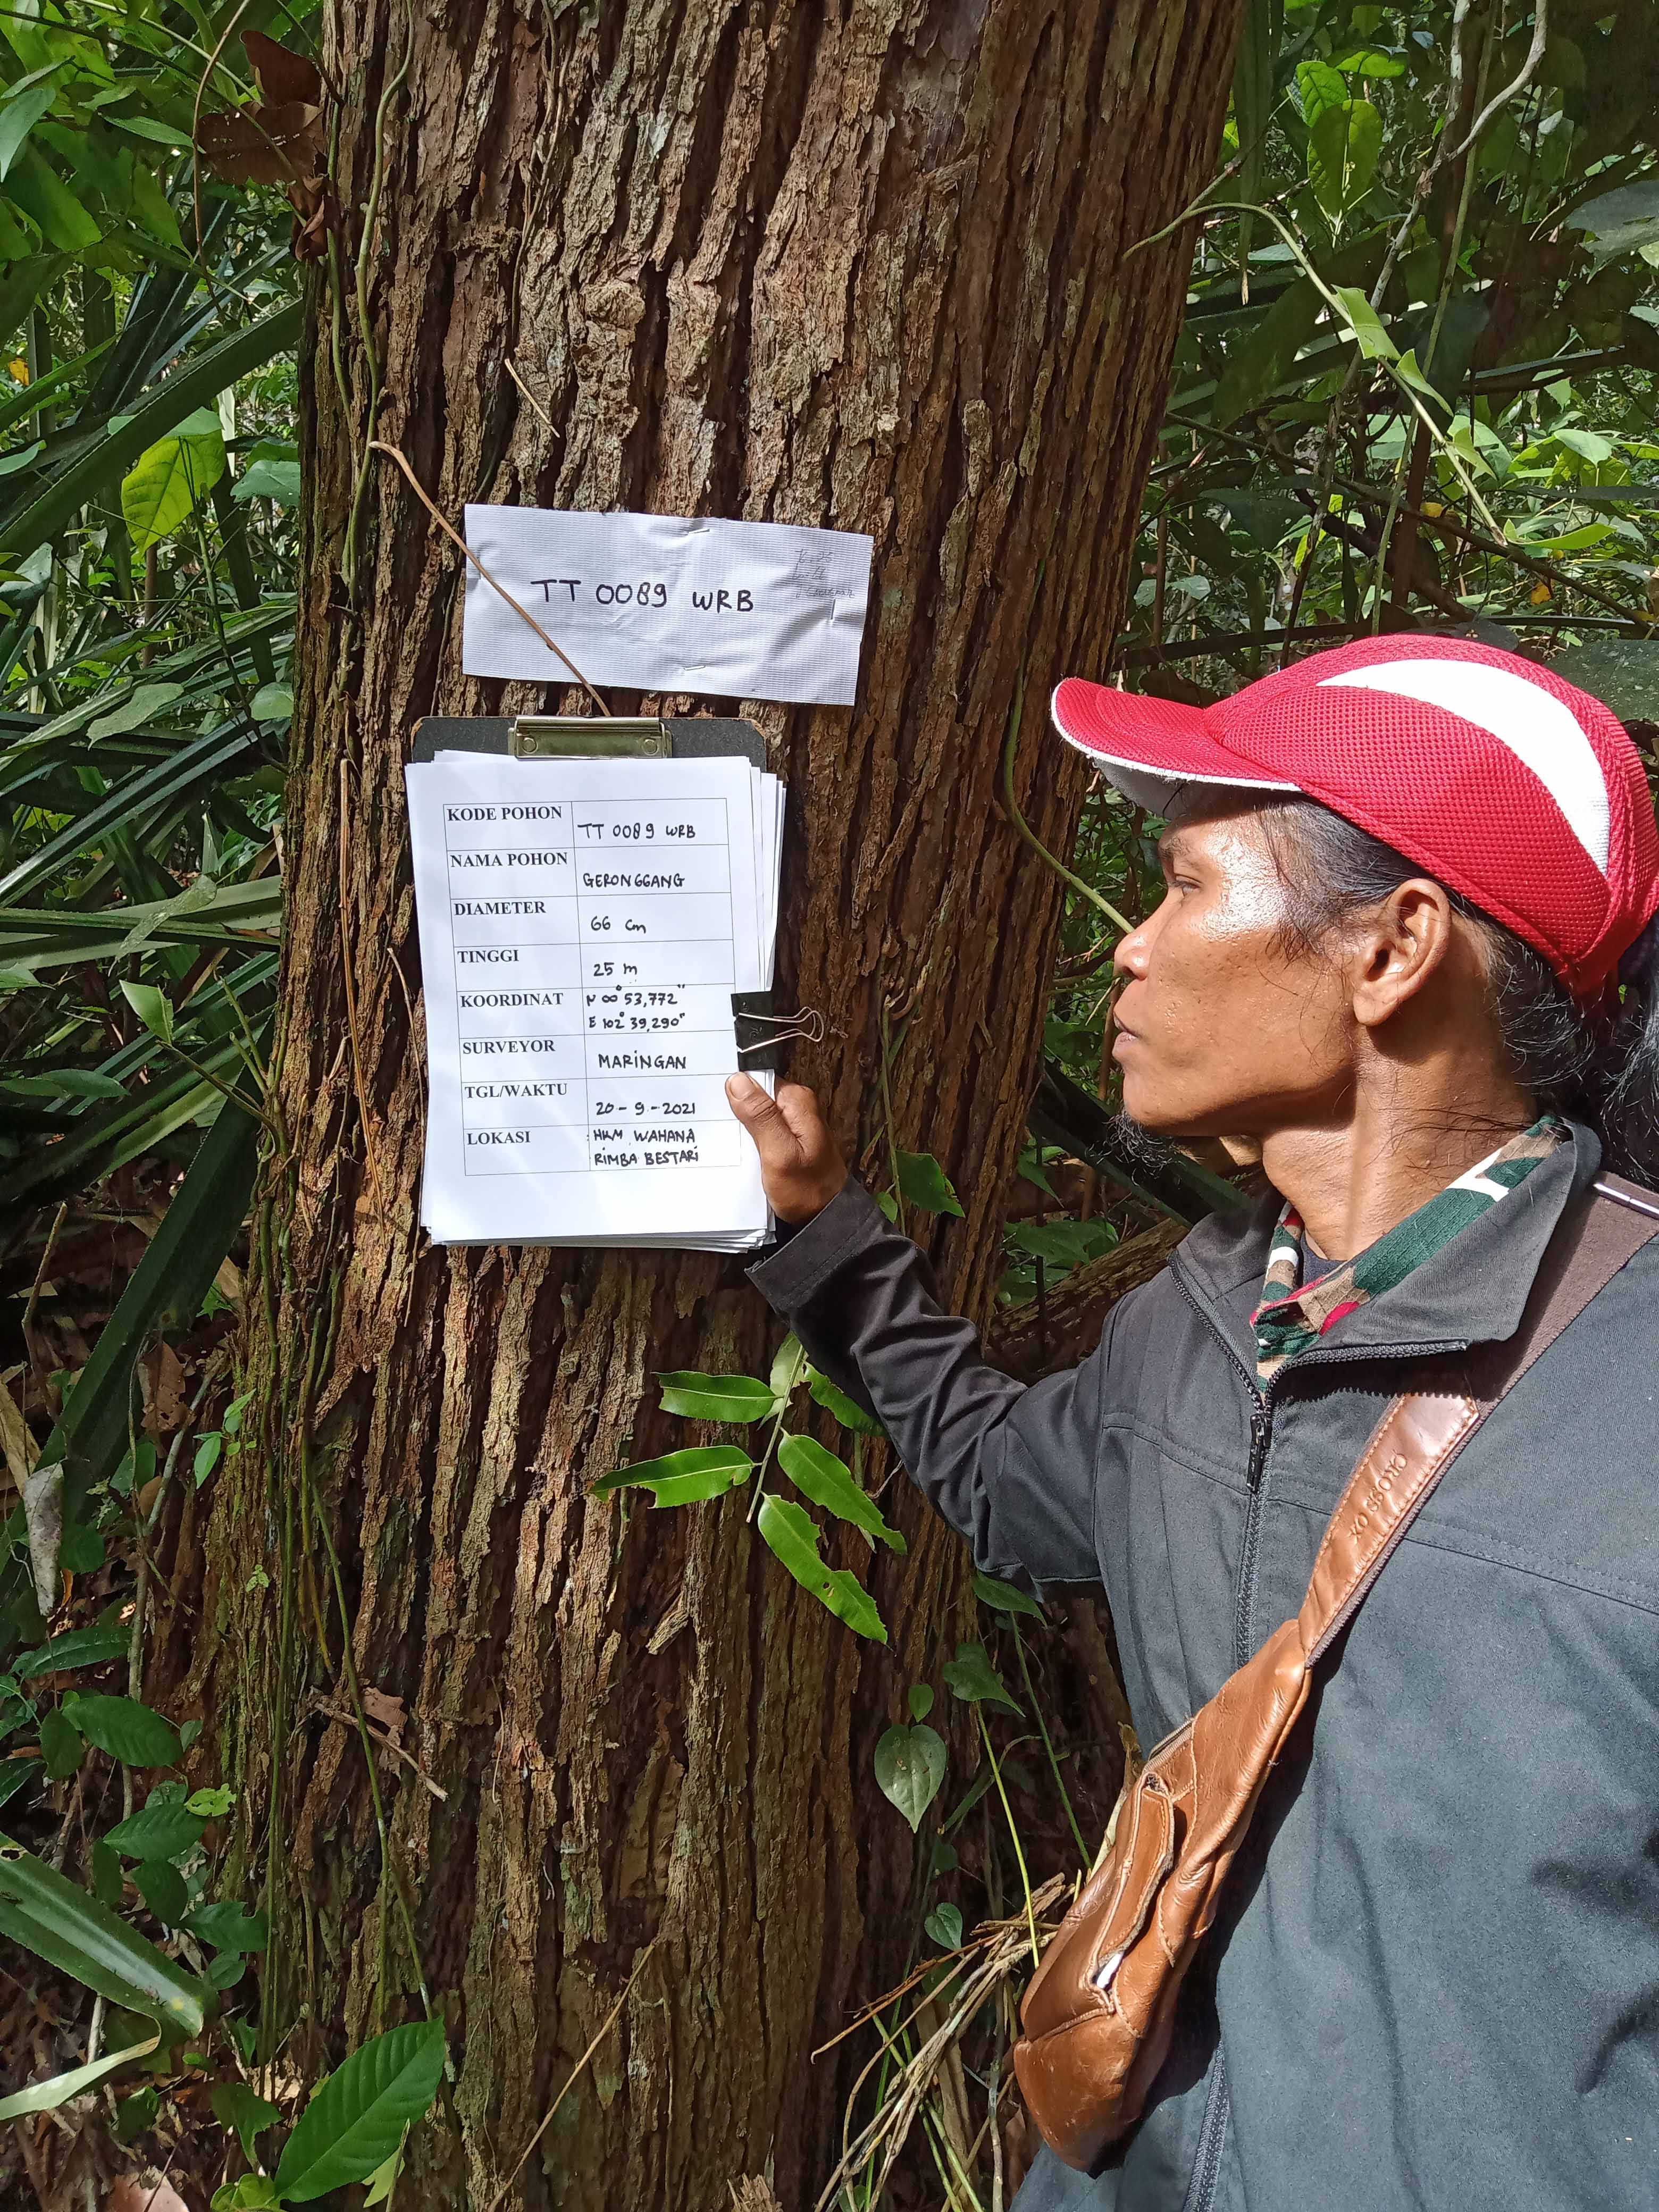 TT 0089 WRB
KODE POHON
TT 0089 WRB
NAMA POHON
GERONGGANG
DIAMETER
66 cm
TINGGI
25 m
KOORDINAT
N 00° 53,772"
E 102° 39,290"
SURVEYOR
MARINGAN
TGL/WAKTU
20-9-2021
LOKASI
: HKM WAHANA
RIMBA BESTARI
CROSS OX